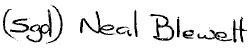 (Sgd) Neal Blewett